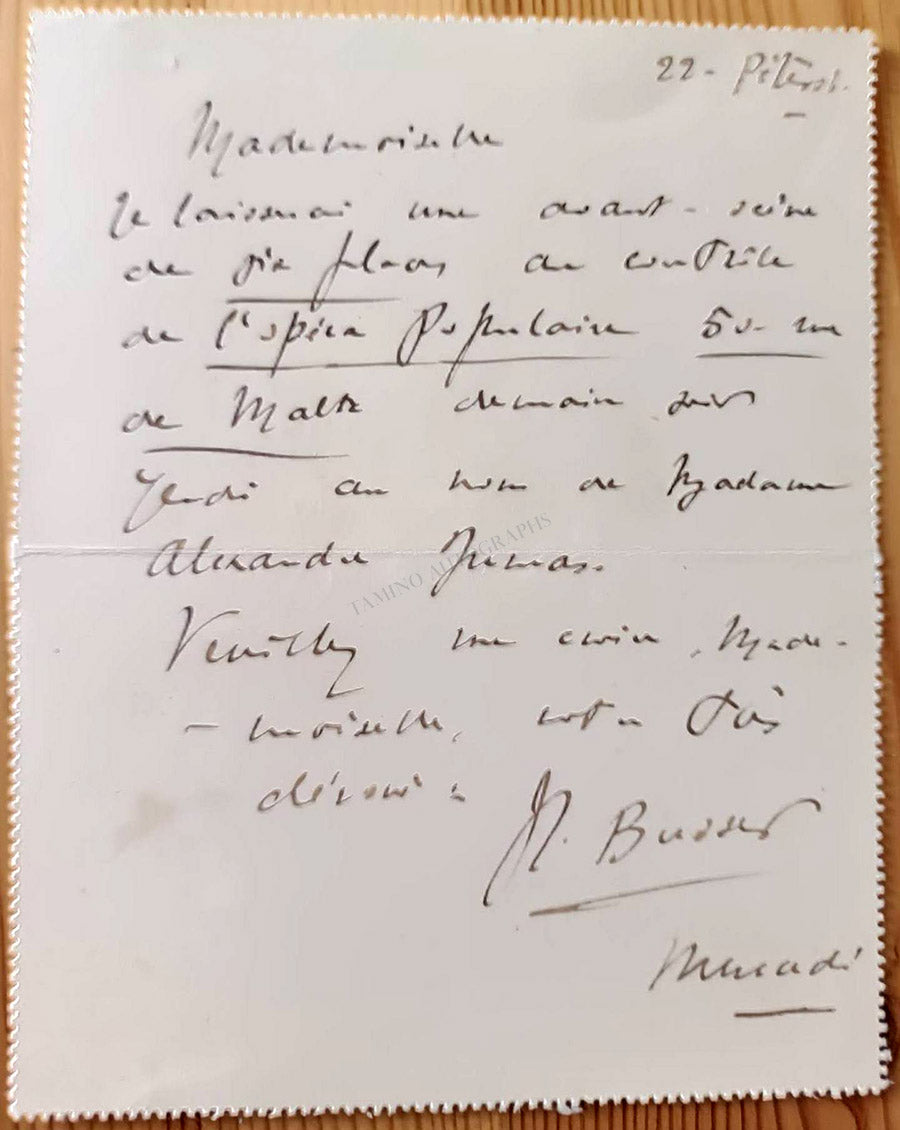 22 - Pétersb.
Mademoiselle
Je laisserai une avant-scène
de six places au contrôle
de l'opéra Populaire 50 rue
de Malte demain soir
Jeudi au nom de Madame
Alexandre Dumas.
Veuillez me croire, Made-
- moiselle, votre très
dévoué
H. Busser
Mercredi
TAMINO AUTOGRAPHS